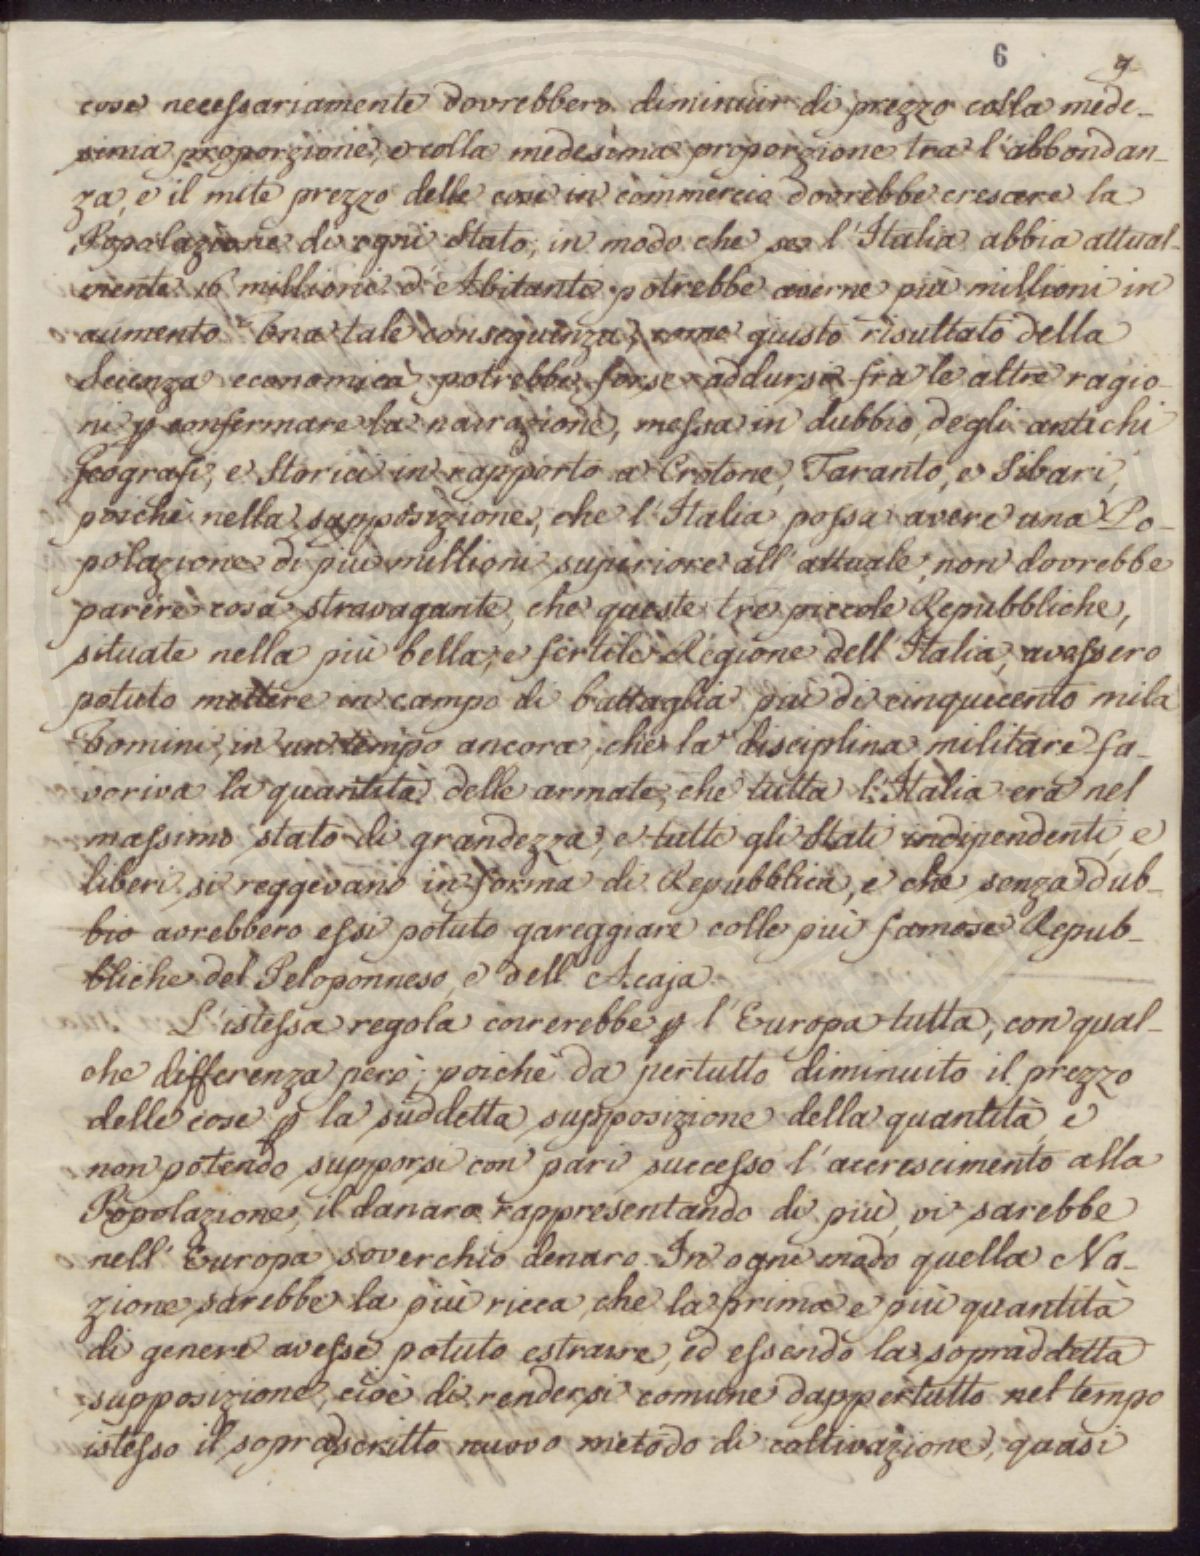 6 9
cose necessariamente dovrebbero diminuir di prezzo colla mede-
sima proporzione, e colla medesima proporzione tra l'abbondan-
za, e il mite prezzo delle cose in commercio dovrebbe crescere la
Popolazione di ogni Stato; in modo che se l'Italia abbia attual-
mente 16 millioni d'Abitanti potrebbe averne più millioni in
aumento. Una tale conseguenza, come giusto risultato della
Scienza economica potrebbe forse addursi fra le altre ragio-
ni p confermare la narrazione, messa in dubbio, degli antichi
Geografi, e Storici in rapporto a Crotone, Taranto, e Sibari,
poichè nella supposizione, che l'Italia possa avere una Po-
polazione di più millioni superiore all'attuale, non dovrebbe
parere cosa stravagante, che queste tre piccole Repubbliche,
situate nella più bella, e fertile Regione dell'Italia, avessero
potuto mettere in campo di battaglia più di cinquecento mila
Uomini, in un tempo ancora, che la disciplina militare fa-
voriva la quantità delle armate, che tutta l'Italia era nel
massimo stato di grandezza, e tutti gli Stati indipendenti, e
liberi si reggevano in forma di Repubblica, e che senza dub-
bio avrebbero essi potuto gareggiare colle più famose Repub-
bliche del Peloponneso, e dell'Acaja.
L'istessa regola correrebbe p l'Europa tutta, con qual-
che differenza però; poichè da pertutto diminuito il prezzo
delle cose p la suddetta supposizione della quantità, e
non potendo supporsi con pari successo l'accrescimento alla
Popolazione, il danaro rappresentando di più, vi sarebbe
nell'Europa soverchio denaro. In ogni modo quella Na-
zione sarebbe la più ricca, che la prima e più quantità
di generi avesse potuto estrarre, ed essendo la sopraddetta
supposizione, cioè di rendersi comune dappertutto nel tempo
istesso il sopradscritto nuovo metodo di coltivazione, quasi